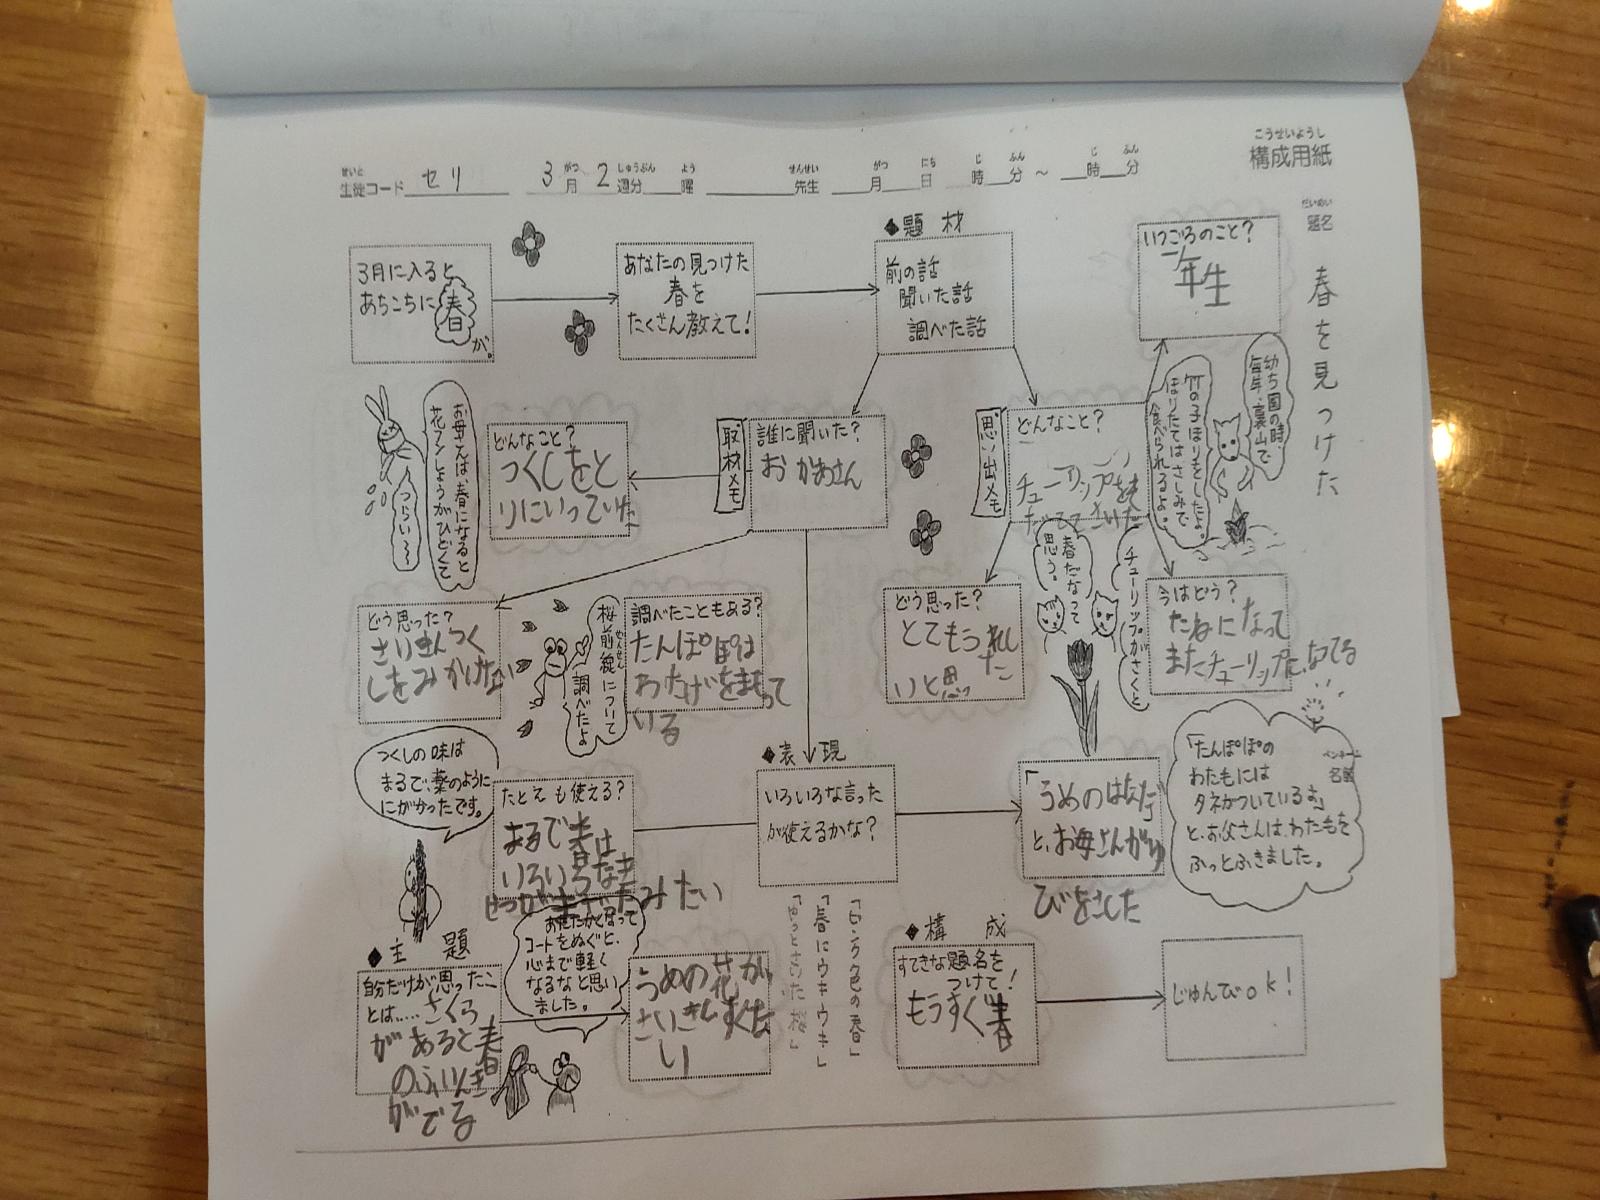 こうせいようし
構成用紙
せいと
生徒コード セリ 3月 2週分 曜 先生 月 日 時 分 ～ 時 分
がつ しゅうぶん よう せんせい がつ にち じ ふん じ ふん
だいめい
題名
春を見つけた
3月に入ると
あちこちに春
が。
あなたの見つけた
春を
たくさん教えて!
◆題材
前の話
聞いた話
調べた話
いつごろのこと?
一年生
幼ち園の時、
毎年、裏山で
竹の子ほりをしたよ。
ほりたてはさしみで
食べられるよ。
思い出メモ
どんなこと?
チューリップを
そだてていた
どう思った?
とてもうれし
いと思った
今はどう?
たねになって
またチューリップになてる
チューリップがさくと
春だなって
思う。
取材メモ
誰に聞いた?
おかあさん
どんなこと?
つくしをと
りにいっていた
お母さんは、春になると
花フンしょうがひどくて
つらい〜
どう思った?
さいきんつく
しをみかけない
調べたこともある?
たんぽぽは
わたげをまもって
いる
桜前線について
ぜんせん
調べたよ
◆表現
いろいろな言った
が使えるかな?
「うめのはなだ」
と、お母さんがゆ
びをさした
ペンネーム
名前
「たんぽぽの
わたもには
タネがついているよ」
と、お父さんは、わたもを
ふっとふきました。
たとえも使える?
まるで春は
いろいろなき
せつがまざたみたい
つくしの味は
まるで、薬のように
にがかったです。
「ピンク色の春」
「春にウキーウキ」
「やっとさいた桜」
◆主題
自分だけが思ったこ
とは……さくら
があると春
のふいんき
がでる
あたたかくなって
コートをぬぐと、
心まで軽く
なるなと思い
ました。
うめの花が
さいきんすくな
い
◆構成
すてきな題名を
つけて!
もうすぐ春
じゅんびok!